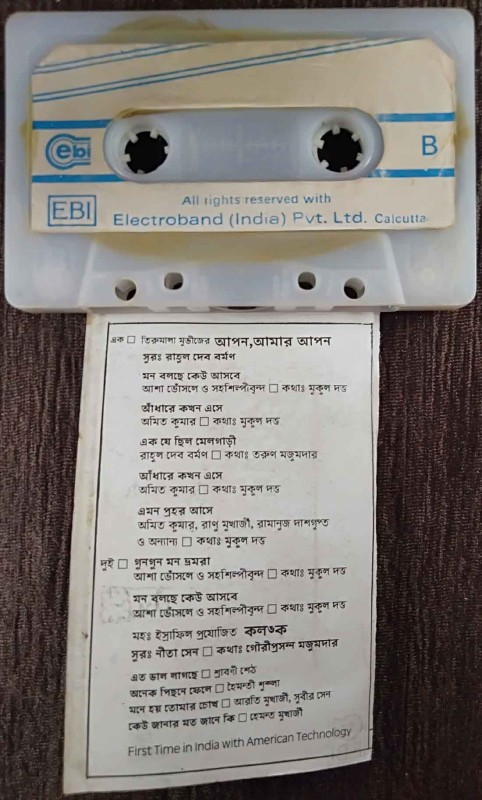 ebi
B
EBI
All rights reserved with
Electroband (India) Pvt. Ltd. Calcutta
এক □ তিরুমালা মুভীজের আপন, আমার আপন
সুরঃ রাহুল দেব বর্মণ
মন বলছে কেউ আসবে
আশা ভোঁসলে ও সহশিল্পীবৃন্দ □ কথাঃ মুকুল দত্ত
আঁধারে কখন এসে
অমিত কুমার □ কথাঃ মুকুল দত্ত
এক যে ছিল মেলগাড়ী
রাহুল দেব বর্মণ □ কথাঃ তরুণ মজুমদার
আঁধারে কখন এসে
অমিত কুমার □ কথাঃ মুকুল দত্ত
এমন প্রহর আসে
অমিত কুমার, রাণু মুখার্জী, রামানুজ দাশগুপ্ত
ও অন্যান্য □ কথাঃ মুকুল দত্ত
দুই □ গুনগুন মন ভ্রমরা
আশা ভোঁসলে ও সহশিল্পীবৃন্দ □ কথাঃ মুকুল দত্ত
মন বলছে কেউ আসবে
আশা ভোঁসলে ও সহশিল্পীবৃন্দ □ কথাঃ মুকুল দত্ত
মহঃ ইস্রাফিল প্রযোজিত কলঙক
সুরঃ নীতা সেন □ কথাঃ গৌরীপ্রসন্ন মজুমদার
এত ভাল লাগছে □ শ্রাবণী শেঠ
অনেক পিছনে ফেলে □ হৈমন্তী শুক্লা
মনে হয় তোমার চোখ □ আরতি মুখার্জী, সুবীর সেন
কেউ জানার মত জানে কি □ হেমন্ত মুখার্জী
First Time in India with American Technology